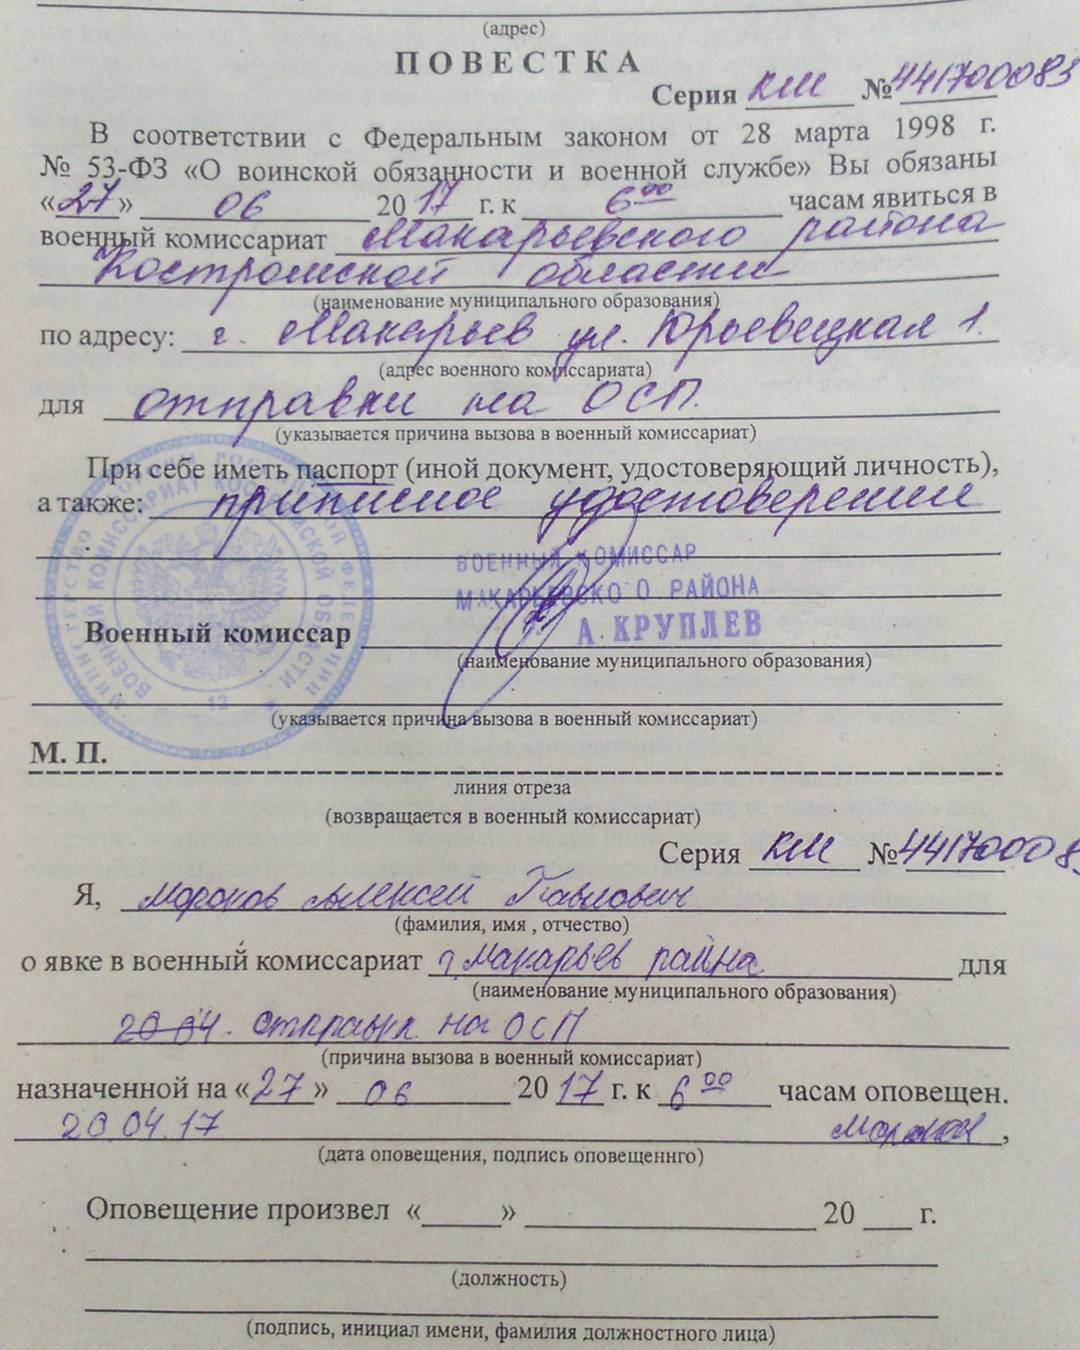 (адрес)
ПОВЕСТКА
Серия КМ № 441700083
В соответствии с Федеральным законом от 28 марта 1998 г.
№ 53-ФЗ «О воинской обязанности и военной службе» Вы обязаны
«27» 06 2017 г. к 6 00 часам явиться в
военный комиссариат Макарьевского района
Костромской области
(наименование муниципального образования)
по адресу: г. Макарьев ул. Юрьевецкая 1.
(адрес военного комиссариата)
для отправки на ОСП.
(указывается причина вызова в военный комиссариат)
При себе иметь паспорт (иной документ, удостоверяющий личность),
а также: приписное удостоверение
ВОЕННЫЙ КОМИССАР
МАКАРЬЕВСКО О РАЙОНА
Военный комиссар А. КРУГЛЕВ
(наименование муниципального образования)
(указывается причина вызова в военный комиссариат)
М. П.
линия отреза
(возвращается в военный комиссариат)
Серия КМ № 44170008
Я, Алексей Павлович
(фамилия, имя , отчество)
о явке в военный комиссариат г. Макарьев райна для
(наименование муниципального образования)
на ОСП
(причина вызова в военный комиссариат)
назначенной на «27» 06 2017 г. к 6 00 часам оповещен.
20.04.17
(дата оповещения, подпись оповещеннго)
Оповещение произвел « » 20 г.
(должность)
(подпись, инициал имени, фамилия должностного лица)